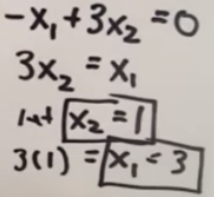 -x₁+3x₂=0
3x₂=x₁
let x₂=1
3(1)=x₁=3